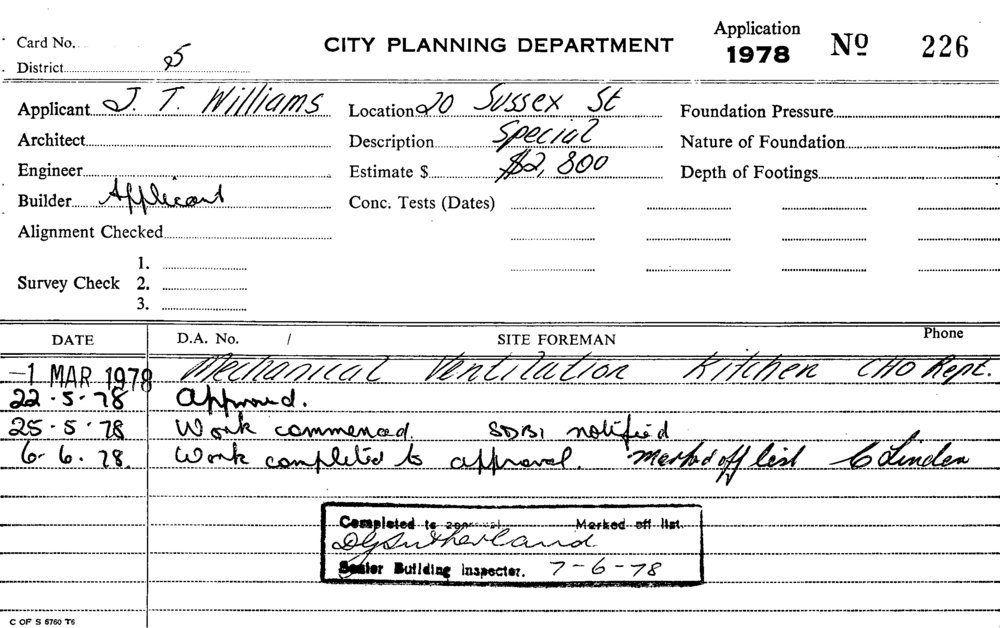 Application
Card No.
CITY PLANNING DEPARTMENT 1978 Nº 226
District 5
Applicant J. T. Williams Location 20 Sussex St Foundation Pressure
Architect Description Special Nature of Foundation
Engineer Estimate $ $2,800 Depth of Footings
Builder Applicant Conc. Tests (Dates)
Alignment Checked
1.
Survey Check 2.
3.
DATE D.A. No. / SITE FOREMAN Phone
-1 MAR 1978 Mechanical Ventilation Kitchen CHO Rept.
22.5.78 Approved.
25.5.78 Work commenced. SDBI notified
6-6.78. Work completed to approval. Marked off list C Linden
Completed to approval Marked off list.
DG Sutherland
Senior Building Inspector. 7-6-78
C OF S 6760 T6